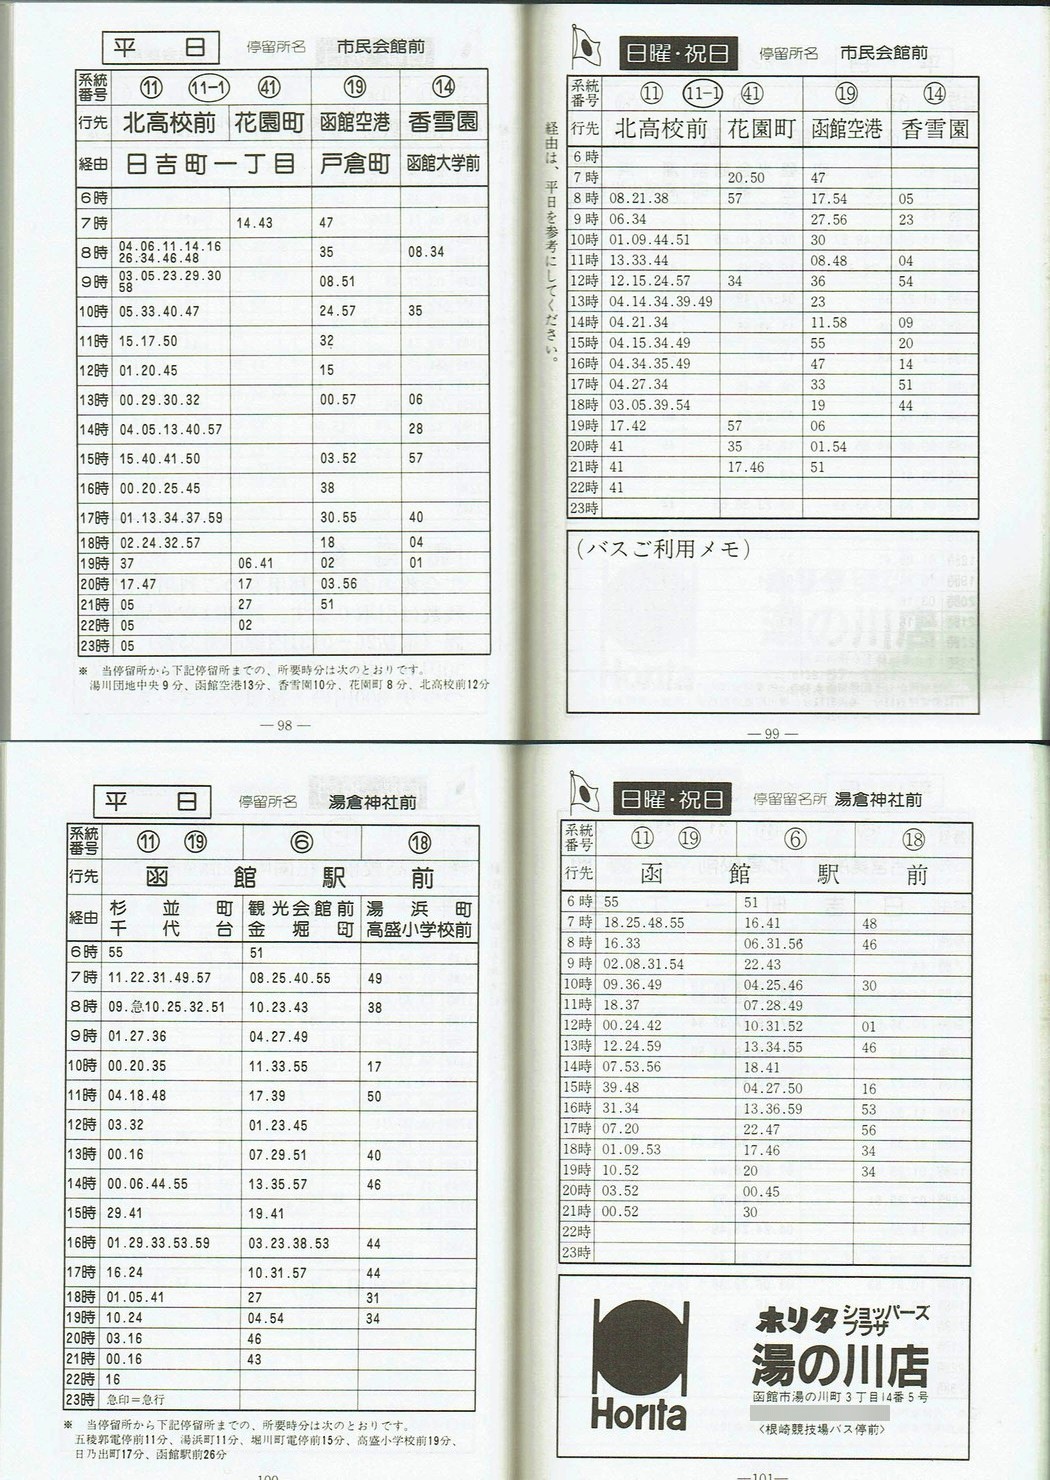 平 日 停留所名 市民会館前
系統番号 ⑪ 11-1 ㊶ ⑲ ⑭
行先 北高校前 花園町 函館空港 香雪園
経由 日吉町一丁目 戸倉町 函館大学前
6時
7時 14.43 47
8時 04.06.11.14.16 35 08.34
26.34.46.48
9時 03.05.23.29.30 08.51
58
10時 05.33.40.47 24.57 35
11時 15.17.50 32
12時 01.20.45 15
13時 00.29.30.32 00.57 06
14時 04.05.13.40.57 28
15時 15.40.41.50 03.52 57
16時 00.20.25.45 38
17時 01.13.34.37.59 30.55 40
18時 02.24.32.57 18 04
19時 37 06.41 02 01
20時 17.47 17 03.56
21時 05 27 51
22時 05 02
23時 05
※ 当停留所から下記停留所までの、所要時分は次のとおりです。
湯川団地中央9分、函館空港13分、香雪園10分、花園町8分、北高校前12分
—98—
日曜・祝日 停留所名 市民会館前
経由は、平日を参考にしてください。
系統番号 ⑪ 11-1 ㊶ ⑲ ⑭
行先 北高校前 花園町 函館空港 香雪園
6時
7時 20.50 47
8時 08.21.38 57 17.54 05
9時 06.34 27.56 23
10時 01.09.44.51 30
11時 13.33.44 08.48 04
12時 12.15.24.57 34 36 54
13時 04.14.34.39.49 23
14時 04.21.34 11.58 09
15時 04.15.34.49 55 20
16時 04.34.35.49 47 14
17時 04.27.34 33 51
18時 03.05.39.54 19 44
19時 17.42 57 06
20時 41 35 01.54
21時 41 17.46 51
22時 41
23時
(バスご利用メモ)
—99—
平 日 停留所名 湯倉神社前
系統番号 ⑪ ⑲ ⑥ ⑱
行先 函館駅前
経由 杉並町 観光会館前 湯浜町
千代台 金堀町 高盛小学校前
6時 55 51
7時 11.22.31.49.57 08.25.40.55 49
8時 09.急10.25.32.51 10.23.43 38
9時 01.27.36 04.27.49
10時 00.20.35 11.33.55 17
11時 04.18.48 17.39 50
12時 03.32 01.23.45
13時 00.16 07.29.51 40
14時 00.06.44.55 13.35.57 46
15時 29.41 19.41
16時 01.29.33.53.59 03.23.38.53 44
17時 16.24 10.31.57 44
18時 01.05.41 27 31
19時 10.24 04.54 34
20時 03.16 46
21時 00.16 43
22時 16
23時 急印=急行
※ 当停留所から下記停留所までの、所要時分は次のとおりです。
五稜郭電停前11分、湯浜町11分、堀川町電停前15分、高盛小学校前19分、
日乃出町17分、函館駅前26分
100
日曜・祝日 停留留名所 湯倉神社前
系統番号 ⑪ ⑲ ⑥ ⑱
行先 函館駅前
6時 55 51
7時 18.25.48.55 16.41 48
8時 16.33 06.31.56 46
9時 02.08.31.54 22.43
10時 09.36.49 04.25.46 30
11時 18.37 07.28.49
12時 00.24.42 10.31.52 01
13時 12.24.59 13.34.55 46
14時 07.53.56 18.41
15時 39.48 04.27.50 16
16時 31.34 13.36.59 53
17時 07.20 22.47 56
18時 01.09.53 17.46 34
19時 10.52 20 34
20時 03.52 00.45
21時 00.52 30
22時
23時
Horita
ホリタ ショッパーズプラザ
湯の川店
函館市湯の川町3丁目14番5号
〈根崎競技場バス停前〉
—101—